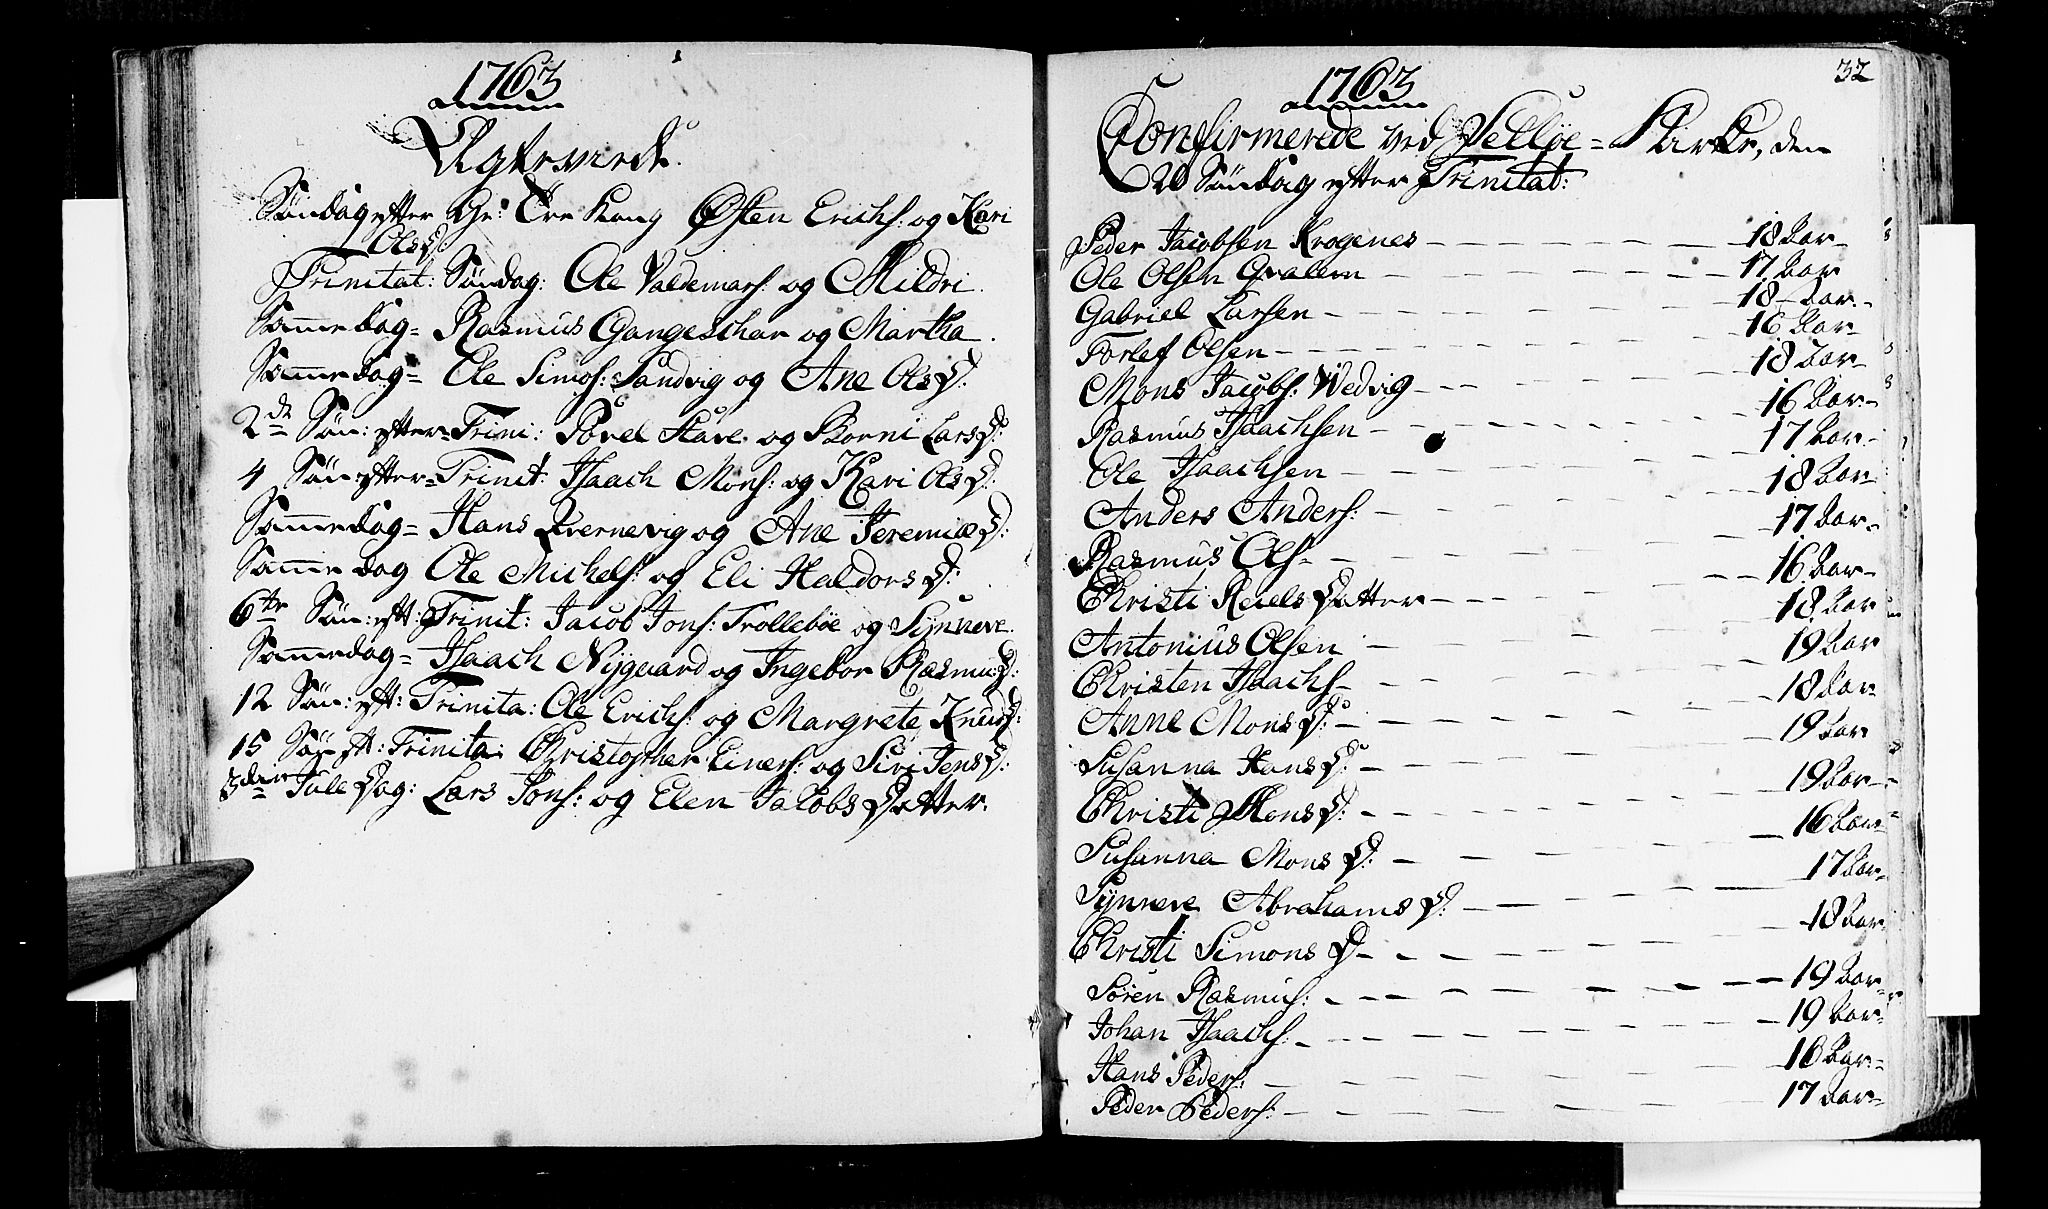 1763
Egteviede.
Søndag efter Ge: Tre Kong Østen Erichs: og Kari
OlsD.
Trinitat: Søndag: Ole Valdemars: og Mildri.
Samme dag = Rasmus Gangeschar og Martha.
Samme dag = Ole Simos: Sandvig og Ane OlsD:
2de Søn: efter = Trini: Povel Have og Skorni LarsD:
4 Søn: efter = Trinit: Isaach Mons: og Kari OlsD:
Samme dag = Hans Qvernevig og Ane JeremiæD:
Samme dag Ole Michels: og Eli HaldorsD:
6te Søn: eft: Trinit: Jacob Jons: Trollebøe og Synneve.
Samme dag = Isaach Nygaard og Ingebor RasmusD:
12 Søn: eft: Trinita: Ole Erichs: og Margrete KnudsD:
15 Søn eft: Trinita: Christopher Einers: og Siri JensD:
3die Jule Dag: Lars Jons: og Elen Jacobs Datter.
1763
32
Confirmerede ved Selløe = Kirke, den
20 Søndag efter Trinitat:
Peder Jacobsen Krogenes - 18 Aar -
Ole Olsen Qvalem - 17 Aar
Gabriel Larsen - 18 - Aar -
Torlef Olsen - 16 Aar -
Mons Jacobs: Wedvig - 18 Aar -
Rasmus Isaachsen - 16 Aar -
Ole Isaachsen - 17 Aar -
Anders Anders: - 18 Aar -
Rasmus Ols - 17 Aar -
Christi Reiels Datter - 16 Aar -
Antonius Olsen - 18 Aar
Christen Isaachs - 19 Aar
Anne MonsD: - 18 Aar
Susanna HansD: - 19 Aar
Christi MonsD: - 19 Aar -
Susanna Mons D: - 16 Aar -
Synneve AbrahamsD: - 17 Aar -
Christi Simons D - 18 Aar
Søren Rasmus: - 19 Aar -
Johan Isaachs: - 19 Aar -
Hans Peders: - 16 Aar -
Peder Peders: - 17 Aar -